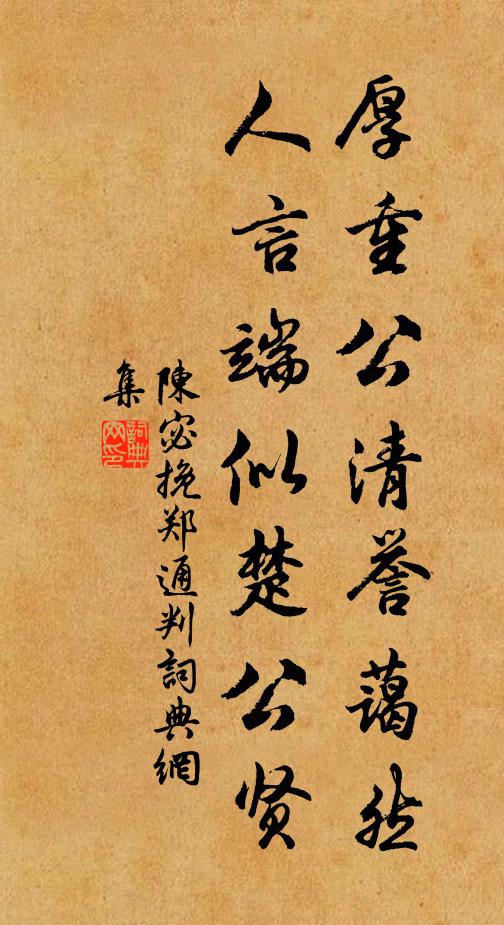 厚重公清誉蔼然
人言端似楚公贤
陳宓挽郑通判詞典網
集
詞典網印